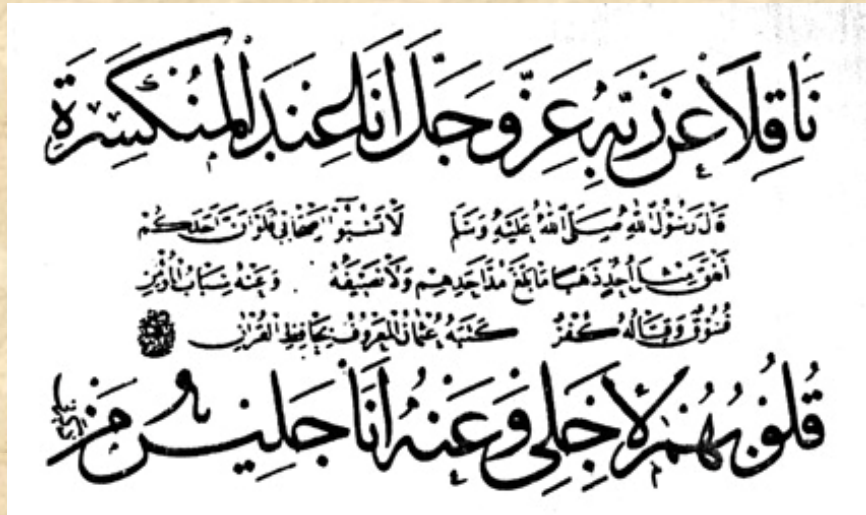 نَاقِلاً عَنْ رَبِّهِ عَزَّ وَجَلَّ اَنَا عِنْدَ الْمُنْكَسِرَةِ
قَالَ رَسُولُ اللهِ صَلَّى اللهُ عَلَيْهِ وَسَلَّمَ لَا تَسُبُّوا اَصْحَابِي فَلَوْ اَنَّ اَحَدَكُمْ
اَنْفَقَ مِثْلَ اُحُدٍ ذَهَبًا مَا بَلَغَ مُدَّ اَحَدِهِمْ وَلَا نَصِيفَهُ وَعَنْهُ سِبَابُ الْمُؤْمِنِ
فُسُوقٌ وَقِتَالُهُ كُفْرٌ كَتَبَهُ عُثْمَانُ الْمَعْرُوفُ بِحَافِظِ الْقُرْاٰنِ
قُلُوبُهُمْ لِأَجْلِي وَعَنْهُ اَنَا جَلِيسُ مَنْ